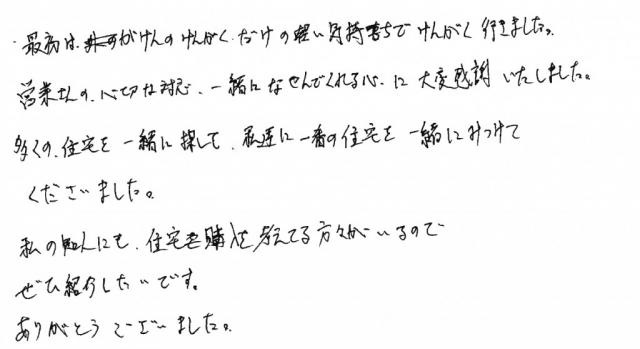 ・最高は がけんのけんがくだけの軽い気持ちでけんがく行きました。
営業さんの、心切な対応、一緒になせんでくれる心に大変感謝いたしました。
多くの、住宅を一緒に探して、私達に一番の住宅を一緒にみつけて
くださいました。
私の知人にも、住宅を購を考えてる方々がいるので
ぜひ紹介したいです。
ありがとうございました。